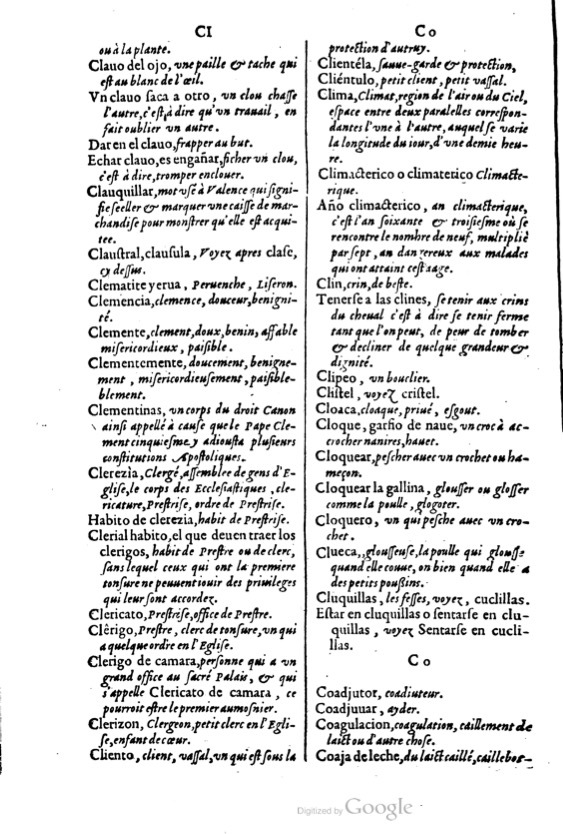 Cl
ou à la plante.
Clauo del ojo, vne paille & tache qui
est au blanc de l'œil.
Vn clauo saca a otro, vn clou chasse
l'autre, c'est, à dire qu'vn trauail, en
fait oublier vn autre.
Dar en el clauo, frapper au but.
Echar clauo, es engañar, ficher vn clou,
c'est à dire, tromper enclouer.
Clauquillar, mot vsé à Valence qui signi-
fie seeller & marquer vne caisse de mar-
chandise pour monstrer qu'elle est acqui-
tee.
Claustral, clausula, Voyez apres clase,
cy dessus.
Clematite yerua, Peruenche, Liseron.
Clemencia, clemence, douceur, benigni-
té.
Clemente, clement, doux, benin, affable
misericordieux, paisible.
Clementemente, doucement, benigne-
ment, misericordieusement, paisible-
blement.
Clementinas, vn corps du droit Canon
ainsi appellé à cause que le Pape Cle-
ment cinquiesme y adiousta plusieurs
constitutions Apostoliques.
Clerezìa, Clergé, assemblee de gens d'E-
glise, le corps des Ecclesiastiques, cle-
ricature, Prestrise, ordre de Prestrise.
Habito de clerezia, habit de Prestrise.
Clerial habito, el que deuen traer los
clerigos, habit de Prestre ou de clerc,
sans lequel ceux qui ont la premiere
tonsure ne peuuent iouir des priuileges
qui leur sont accordez.
Clericato, Prestrise, office de Prestre.
Clêrigo, Prestre, clerc de tonsure, vn qui
a quelque ordre en l'Eglise.
Clerigo de camara, personne qui a vn
grand office au sacré Palais, & qui
s'appelle Clericato de camara, ce
pourroit estre le premier aumosnier.
Clerizon, Clergeon, petit clerc en l'Egli-
se, enfant de cœur.
Cliento, client, vassal, vn qui est sous la
Co
protection d'autruy.
Clientéla, sauue-garde & protection,
Cliéntulo, petit client, petit vassal.
Clima, Climat, region de l'air ou du Ciel,
espace entre deux paralelles correspon-
dantes l'vne à l'autre, auquel se varie
la longitude du iour, d'vne demie heu-
re.
Climacterico o climaterico Climacte-
rique.
Año climacterico, an climacterique,
c'est l'an soixante & troisiesme où se
rencontre le nombre de neuf, multiplié
par sept, an dangereux aux malades
qui ont attaint cest aage.
Clin, crin, de beste.
Tenerse a las clines, se tenir aux crins
du cheual c'est à dire se tenir ferme
tant que l'on peut, de peur de tomber
& decliner de quelque grandeur &
dignité.
Clipeo, vn bouclier.
Clistel, voyez cristel.
Cloaca, cloaque, priué, esgout.
Cloque, garfio de naue, vn croc à ac-
crocher nauires, hauet.
Cloquear, pescher auec vn crochet ou ha-
meçon.
Cloquear la gallina, glousser ou glosser
comme la poulle, glogoter.
Cloquero, vn qui pesche auec vn cro-
chet.
Clueca, glousseuse, la poulle qui glousse
quand elle couue, ou bien quand elle a
des petits poußins.
Cluquillas, les fesses, voyez, cuclillas.
Estar en cluquillas o sentarse en clu-
quillas, voyez Sentarse en cucli-
llas.
Co
Coadjutor, coadiuteur.
Coadjuuar, ayder.
Coagulacion, coagulation, caillement de
laict ou d'autre chose.
Coaja de leche, du laict caillé, caillebot-
Digitized by Google